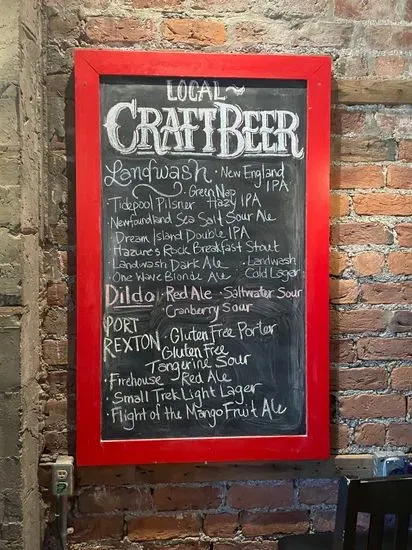 LOCAL~
CRAFT BEER
Landwash · New England
IPA
· Green Nap
Tidepool Pilsner Hazy IPA
· Newfoundland Sea Salt Sour Ale
· Dream Island Double IPA
Hazure's Rock Breakfast Stout
· Landwash Dark Ale · Landwash
· One Wave Blonde Ale Cold Lager
Dildo · Red Ale · Saltwater Sour
· Cranberry Sour
PORT
REXTON · Gluten Free Porter
· Gluten Free
Tangerine Sour
· Firehouse Red Ale
· Small Trek Light Lager
· Flight of the MangoFruit Ale